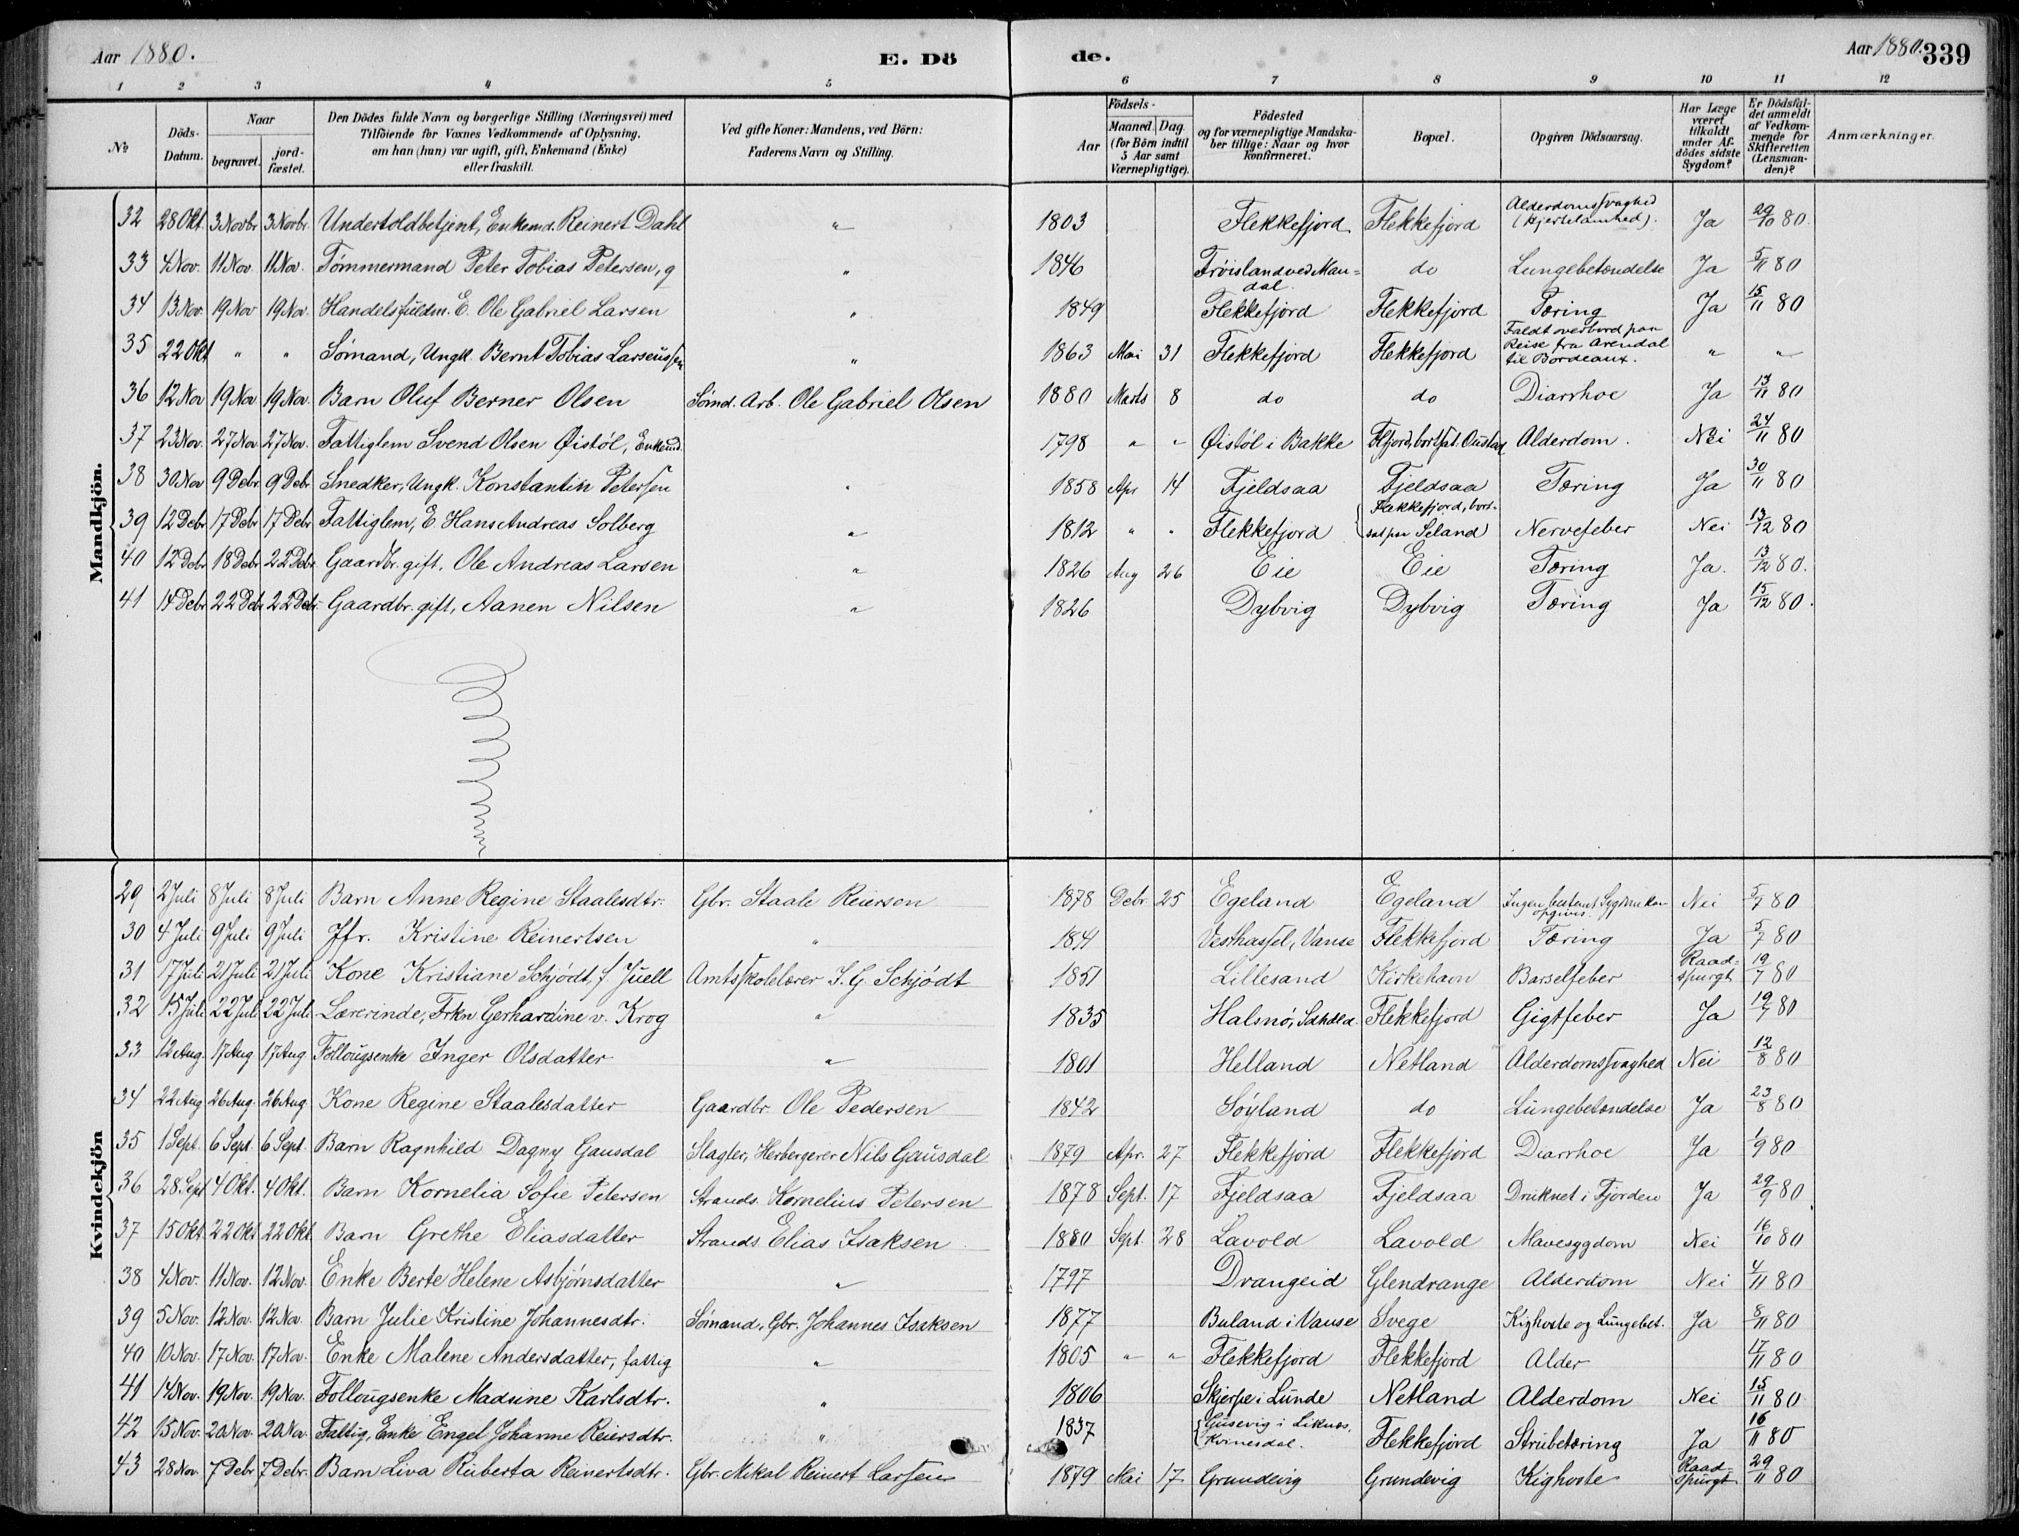 Aar 1880. E. Dö de. Aar 1880. 339
1 2 3 4 5 6 7 8 9 10 11 12
№ Döds-Datum. Naar begravet. jordfæstet. Den Dödes fulde Navn og borgerlige Stilling (Næringsvei) med Tilföiende for Voxnes Vedkommende af Oplysning, om han (hun) var ugift, gift, Enkemand (Enke) eller fraskilt. Ved gifte Koner: Mandens, ved Börn: Faderens Navn og Stilling. Födsels- Aar Maaned. Dag. (for Börn indtil 5 Aar samt Værnepligtige). Födested og for værnepligtige Mandskaber tillige: Naar og hvor konfirmeret. Bopæl. Opgiven Dödsaarsag. Har Læge været tilkaldt under Afdödes sidste Sygdom? Er Dödsfaldet anmeldt af Vedkommende for Skifteretten (Lensmanden)? Anmærkninger.
Mandkjön.
32 28 Okt. 3 Novbr 3 Novbr. Undertoldbetjent, Enkemd. Reinert Dahl " 1803 Flekkefjord Flekkefjord Alderdomssvaghed (Hjertelamhed). Ja 29/10 80.
33 4 Nov. 11 Nov. 11 Nov. Tømmermand Peter Tobias Petersen, g " 1846 Frøisland ved Mandal. do Lungebetændelse Ja 5/11 80
34 13 Nov. 19 Nov 19 Nov. Handelsfuldm. E. Ole Gabriel Larsen " 1849 Flekkefjord Flekkefjord Tæring Ja 15/11 80
35 22 Okt " " Sømand, Ungk. Bernt Tobias Larseussen " 1863 Mai 31 Flekkefjord Flekkefjord Faldt overbord paa Reise fra Arendal til Bordeaux. " "
36 12 Nov 19 Nov 19 Nov. Barn Oluf Berner Olsen Sømd. Arb. Ole Gabriel Olsen 1880 Marts 8 do do Diarrhoe Ja 13/11 80
37 23 Nov. 27 Nov 27 Nov. Fattiglem Svend Olsen Øistøl, Enkemd. 1798 " " Øistøl i Bakke Flfjord, bortsat Oustad Alderdom. Nei 24/11 80
38 30 Nov 9 Debr 9 Debr Snedker, Ungk. Konstantin Petersen " 1858 Apr 14 Fjeldsaa Fjeldsaa Tæring Ja 30/11 80
39 12 Debr 17 Debr 17 Debr Fattiglem, E Hans Andreas Solberg " 1812 " " Flekkefjord Flekkefjord, bortsat paa Seland Nervefeber Nei 13/12 80
40 12 Debr 18 Debr 22 Debr. Gaardbr. gift, Ole Andreas Larsen " 1826 Aug 26 Eie Eie Tæring Ja. 13/12 80.
41 14 Debr 22 Debr 22 Debr. Gaardbr. gift, Aanen Nilsen " 1826 Dybvig Dybvig Tæring Ja 15/12 80.
Kvindekjön
29 2 Juli 8 Juli 8 Juli Barn Anne Regine Staalesdtr. Gbr. Staale Reierson 1878 Debr. 25 Egeland Egeland Ingen bestemt Sygdom kan opgives. Nei 5/7 80
30 4 Juli 9 Juli 9 Juli Jfr. Kristine Reinertsen " 1841 Vesthassel, Vanse Flekkefjord Tæring Ja 5/7 80
31 17 Juli 21 Juli 21 Juli Kone Kristiane Schjødt, f. Juell Amtsskolelærer S. G. Schjødt 1851 Lillesand Kirkehavn Barselfeber Raadspurgt 19/7 80
32 15 Juli 22 Juli 22 Juli. Lærerinde, Frkn Gerhardine v. Krog " 1835 Halsnø, Sdhdld. Flekkefjord Gigtfeber Ja 19/7 80
33 12 Aug. 17 Aug 17 Aug Follougsenke Inger Olsdatter " 1801 Helland Netland Alderdomssvaghed Nei 12/8 80
34 22 Aug 26 Aug. 26 Aug Kone Regine Staalesdatter Gaardbr. Ole Pedersen 1842 Søyland do Lungebetændelse Ja 23/8 80
35 1 Sept. 6 Sept. 6 Sept. Barn Ragnhild Dagny Gausdal Slagter, Herbergerer Nils Gausdal 1879 Apr. 27 Flekkefjord Flekkefjord Diarrhoe Ja 1/9 80
36 28 Sept 4 Okt. 4 Okt. Barn Kornelia Sofie Petersen Strands. Kornelius Petersen 1878 Sept. 17 Fjeldsaa Fjeldsaa Druknet i Fjorden Ja 29/9 80
37 15 Okt. 22 Okt 22 Okt. Barn Grethe Eliasdatter Strands Elias Isaksen 1880 Sept. 28 Lavold Lavold Mavesygdom Nei 16/10 80
38 4 Nov. 11 Nov. 12 Nov. Enke Berte Helene Asbjørnsdatter " 1797 Drangeid Glendrange Alderdom Nei 4/11 80
39 5 Nov. 12 Nov. 12 Nov. Barn Julie Kristine Johannesdtr. Sømand, Gbr. Johannes Isaksen 1877 Buland i Vanse Svege Kighoste og Lungebet. Ja 8/11 80
40 10 Nov. 17 Nov. 17 Nov. Enke Malene Andersdatter, fattig " 1805 " " Flekkefjord Flekkefjord Alder 17/11 80
41 14 Nov. 19 Nov. 19 Nov. Follougsenke Madsine Karlsdtr. " 1806 Skjerpe i Lunde Netland Alderdom Nei 15/11 80
42 15 Nov. 20 Nov. 20 Nov. Fattig, Enke Engel Johanne Reiersdtr. " 1837 Gusevig i Liknes, Kvinesdal. Flekkefjord Strubetæring Ja 16/11 80
43 28 Nov. 7 Debr 7 Debr. Barn Liva Ruberta Reinertsdtr. Gbr. Mikal Reinert Larsen 1879 Mai 17 Grundevig Grundevig Kighoste Raadspurgt. 29/11 80